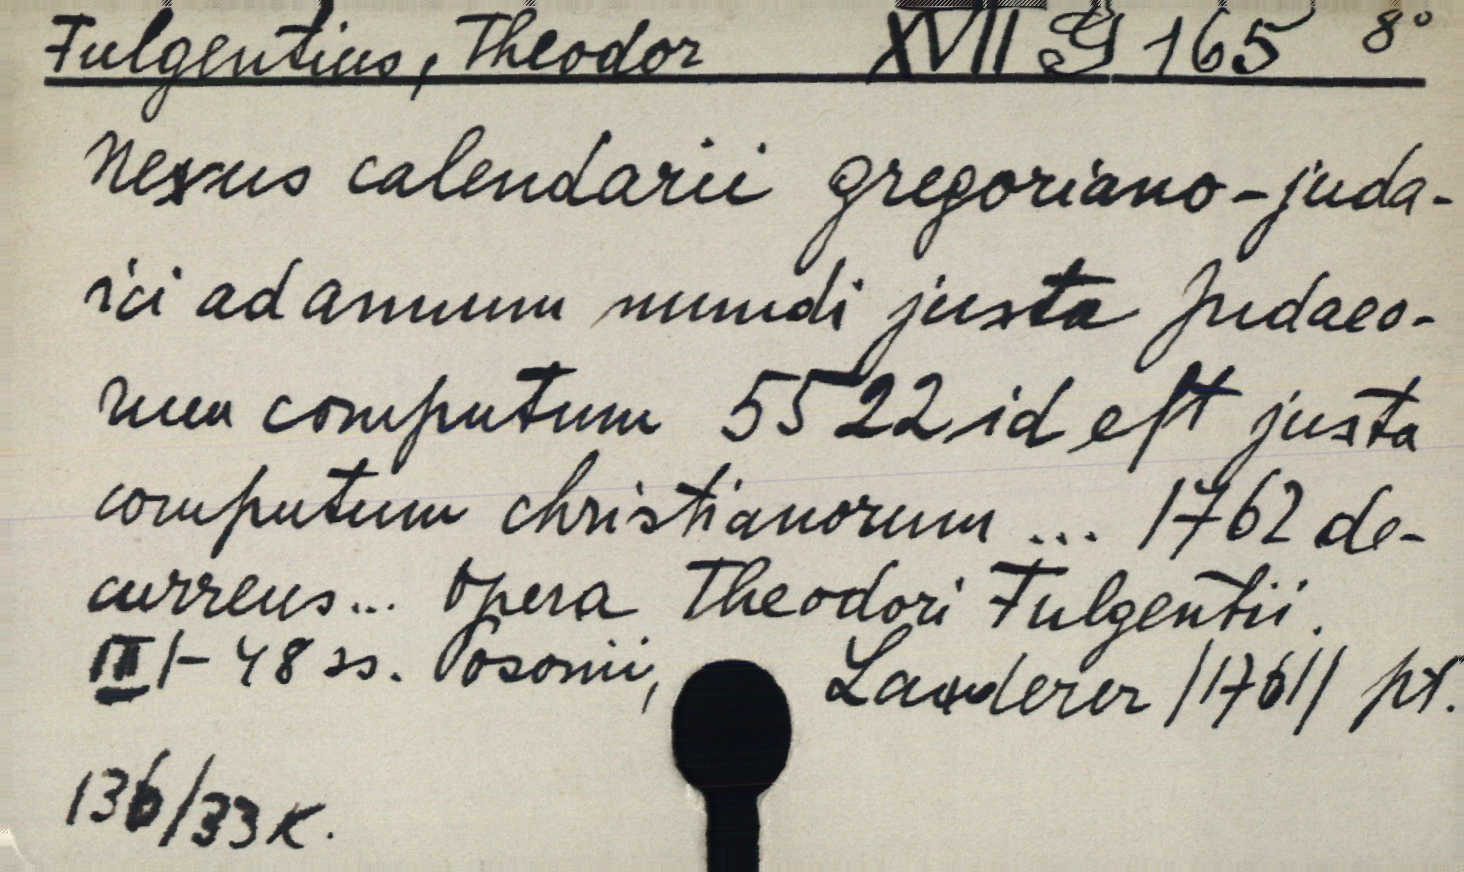 Fulgentius, Theodor XVII G 165 8°
Nexus calendarii gregoriano-juda-
ici ad annum mundi juxta Judaeo-
rum computum 5522 id est juxta
computum christianorum ... 1762 de-
currens... Opera Theodori Fulgentii.
III 1-48 ss. Posonii, Landerer /1761/ pt.
136/33 K.